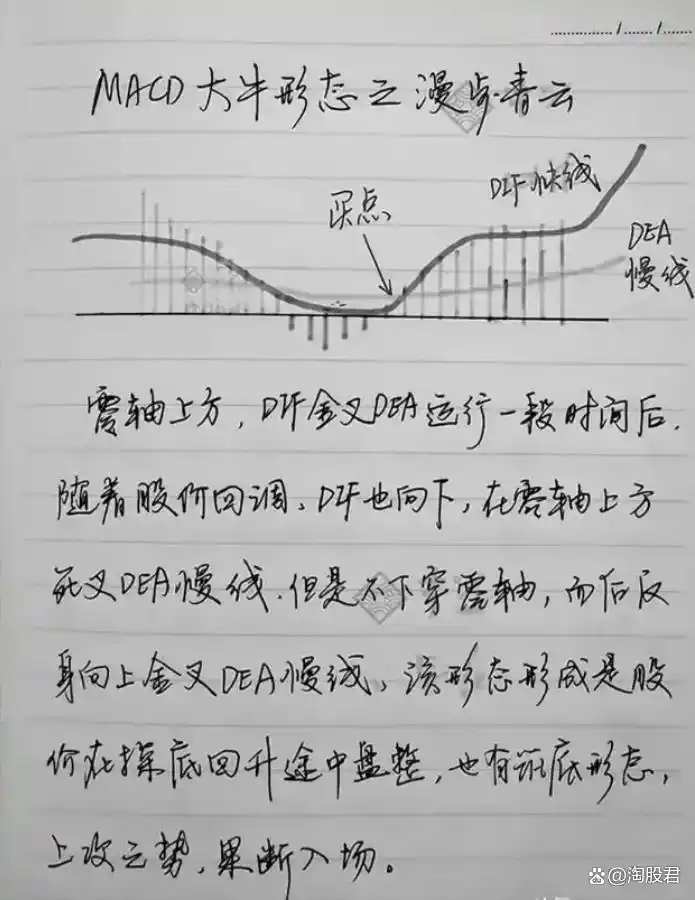 MACD大牛形态之漫步青云
DIF快线
买点
DEA
慢线
零轴上方，DIF金叉DEA运行一段时间后，
随着股价回调、DIF也向下，在零轴上方
死叉DEA慢线，但是不下穿零轴，而后反
身向上金叉DEA慢线，该形态形成是股
价在探底回升途中盘整，也有筑底形态，
上攻之势，果断入场。
@淘股君